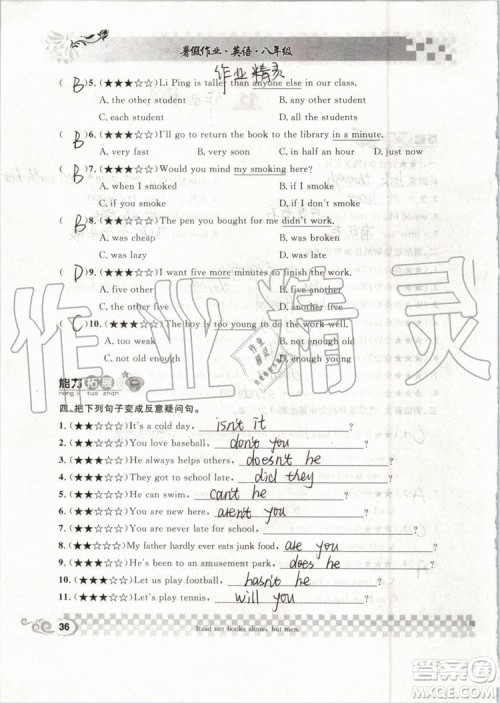 暑假作业·英语·八年级
作业精灵
( B )5. (★★★☆☆)Li Ping is taller than anyone else in our class.
A. the other student B. any other student
C. each student D. all the students
( B )6. (★★★☆☆)I'll go to return the book to the library in a minute.
A. very fast B. very soon C. in half an hour D. just now
( B )7. (★★★☆☆)Would you mind my smoking here?
A. when I smoked B. if I smoked
C. if you smoke D. if I don't smoke
( B )8. (★★★☆☆)The pen you bought for me didn't work.
A. was cheap B. was broken
C. was lazy D. was expensive
( D )9. (★★★☆☆)I want five more minutes to finish the work.
A. five other B. five another
C. the other five D. another five
( C )10. (★★★☆☆)The boy is too young to do the work well.
A. too weak B. old enough
C. not old enough D. not enough old
能力拓展
néng lì tuò zhǎn
四、把下列句子变成反意疑问句。
1. (★★☆☆☆)It's a cold day, isn't it ?
2. (★★☆☆☆)You love baseball, don't you ?
3. (★★☆☆☆)He always helps others, doesn't he ?
4. (★★☆☆☆)They got to school late, did they ?
5. (★★☆☆☆)He can swim, can't he ?
6. (★★☆☆☆)You are new here, aren't you ?
7. (★★★☆☆)You are never late for school, are you ?
8. (★★★☆☆)My father hardly ever eats junk food, does he ?
9. (★★★☆☆)He's been to an amusement park, hasn't he ?
10. (★★★☆☆)Let us play football, will you ?
11. (★★★☆☆)Let's play tennis, ?
36
Read not books alone, but men.
作业精灵
答案圈